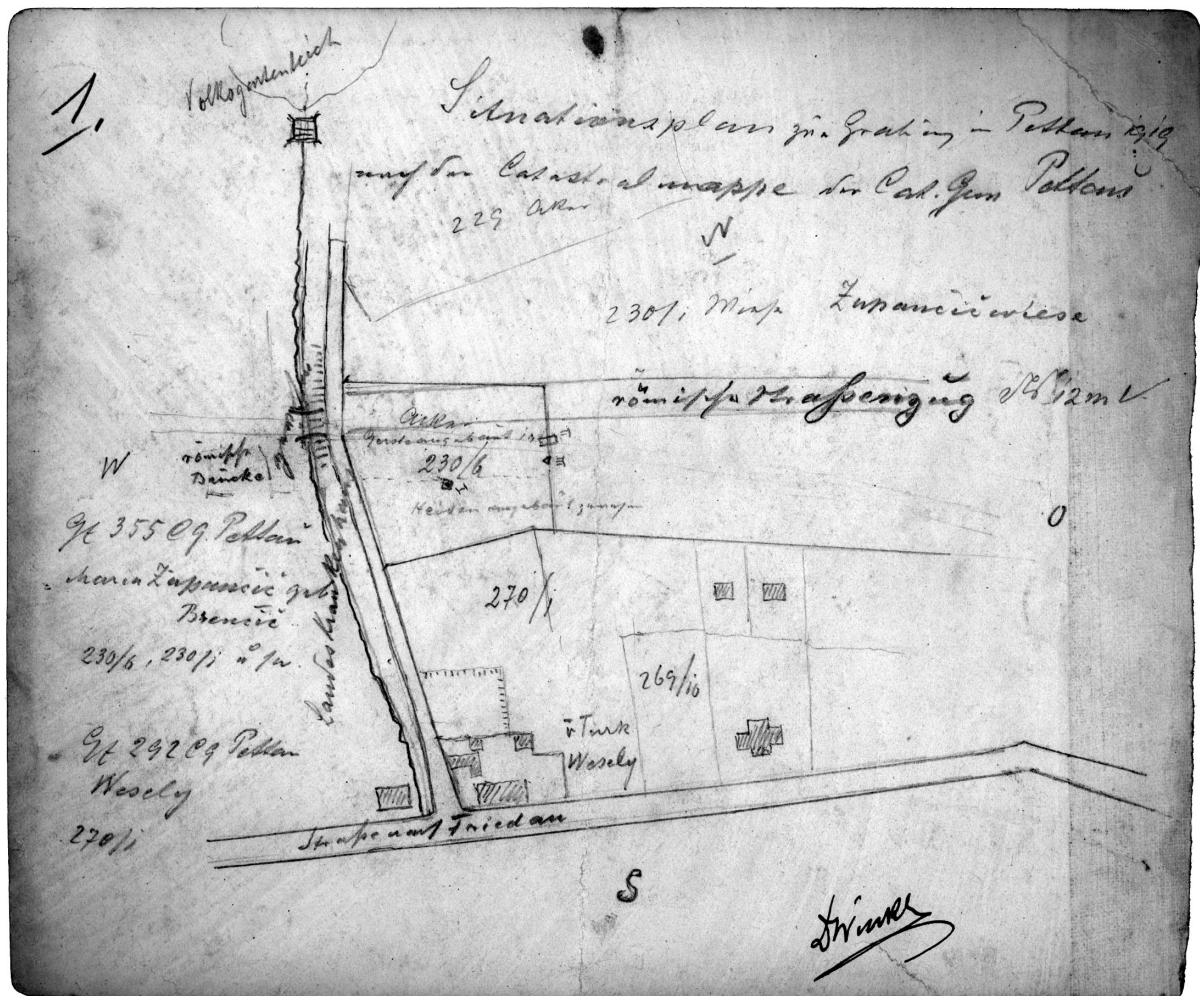 1.
Volksgartenteich
Situationsplan zur Grabung in Pettau 1919
nach der Catastralmappe der Cat. Gem Pettau
229 Acker
N
230/1 Wiese Zupančičwiese
römische Straßenzug 12 m
Acker
Gerste angebaut
230/6
W
römische
Brücke
angebaut
O
Gt 355 CG. Pettau
Maria Zupančič geb
Brenčič
230/6, 230/1
Landeskrankenhaus
270/1
269/10
v Turk
Wesely
Gt 292 CG Pettau
Wesely
270/1
Straße nach Friedau
S